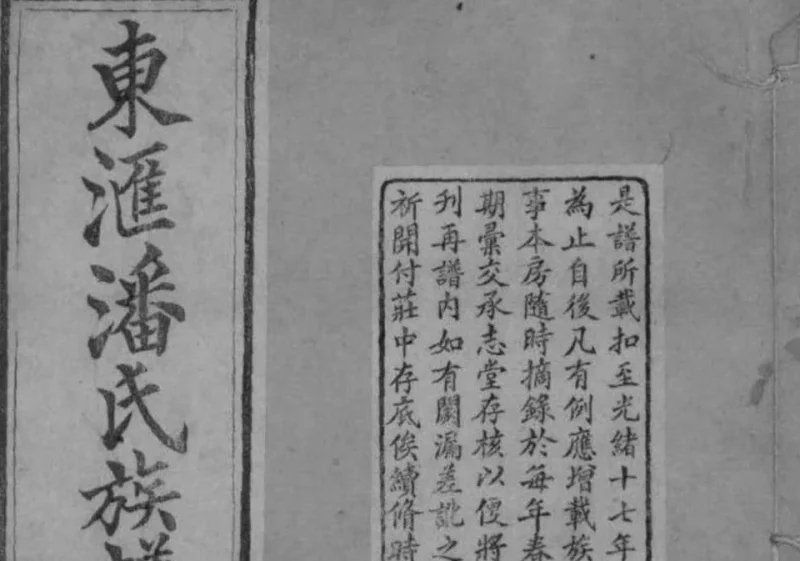 是譜所載扣至光緒十七年
為止自後凡有例應增載族
事本房隨時摘錄於每年春
期彙交承志堂存核以便將
刋再譜內如有闕漏差訛之
祈開付莊中存底俟續脩時
東滙潘氏族